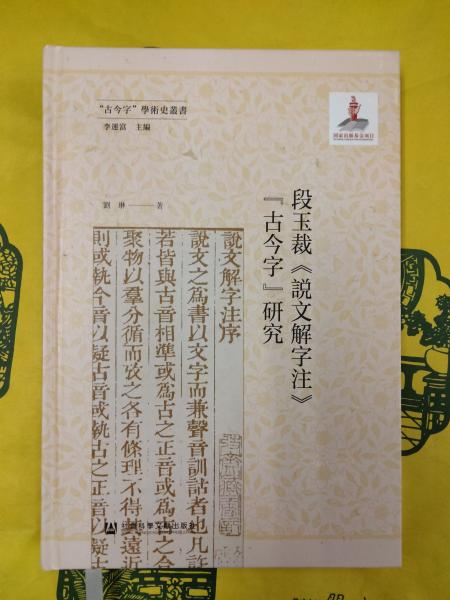 “古今字”學術史叢書
李運富 主編
國家出版基金項目
段玉裁《説文解字注》
『古今字』研究
劉琳——著
説文解字注序
説文之爲書以文字而兼聲音訓詁者也凡許
若皆與古音相準或爲古之正音或爲古之合
聚物以羣分循而攷之各有條理不得遠近
則或執今音以疑古音或執古之正音以疑古
社會科學文獻出版社